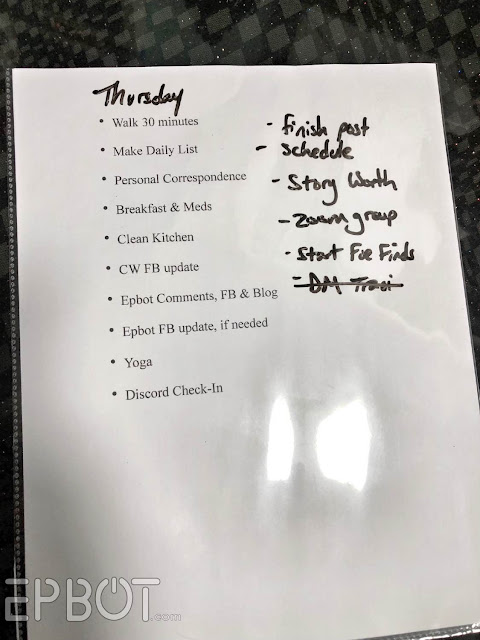 Thursday
• Walk 30 minutes
• Make Daily List
• Personal Correspondence
• Breakfast & Meds
• Clean Kitchen
• CW FB update
• Epbot Comments, FB & Blog
• Epbot FB update, if needed
• Yoga
• Discord Check-In
- finish post
- schedule
- Story Worth
- Zoom group
- Start Fve Finds
- DM Traci
EPBOT.com